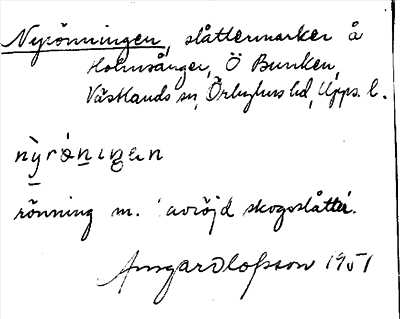 Nyrönningen, slåttermarker å
Holmsånger, Ö Bunken,
Västlands sn, Örbyhus hd, Upps. l.
nỳrǿniŋen
rönning m. 'avröjd skogsslåtter'.
Ansgar Olofsson 1951